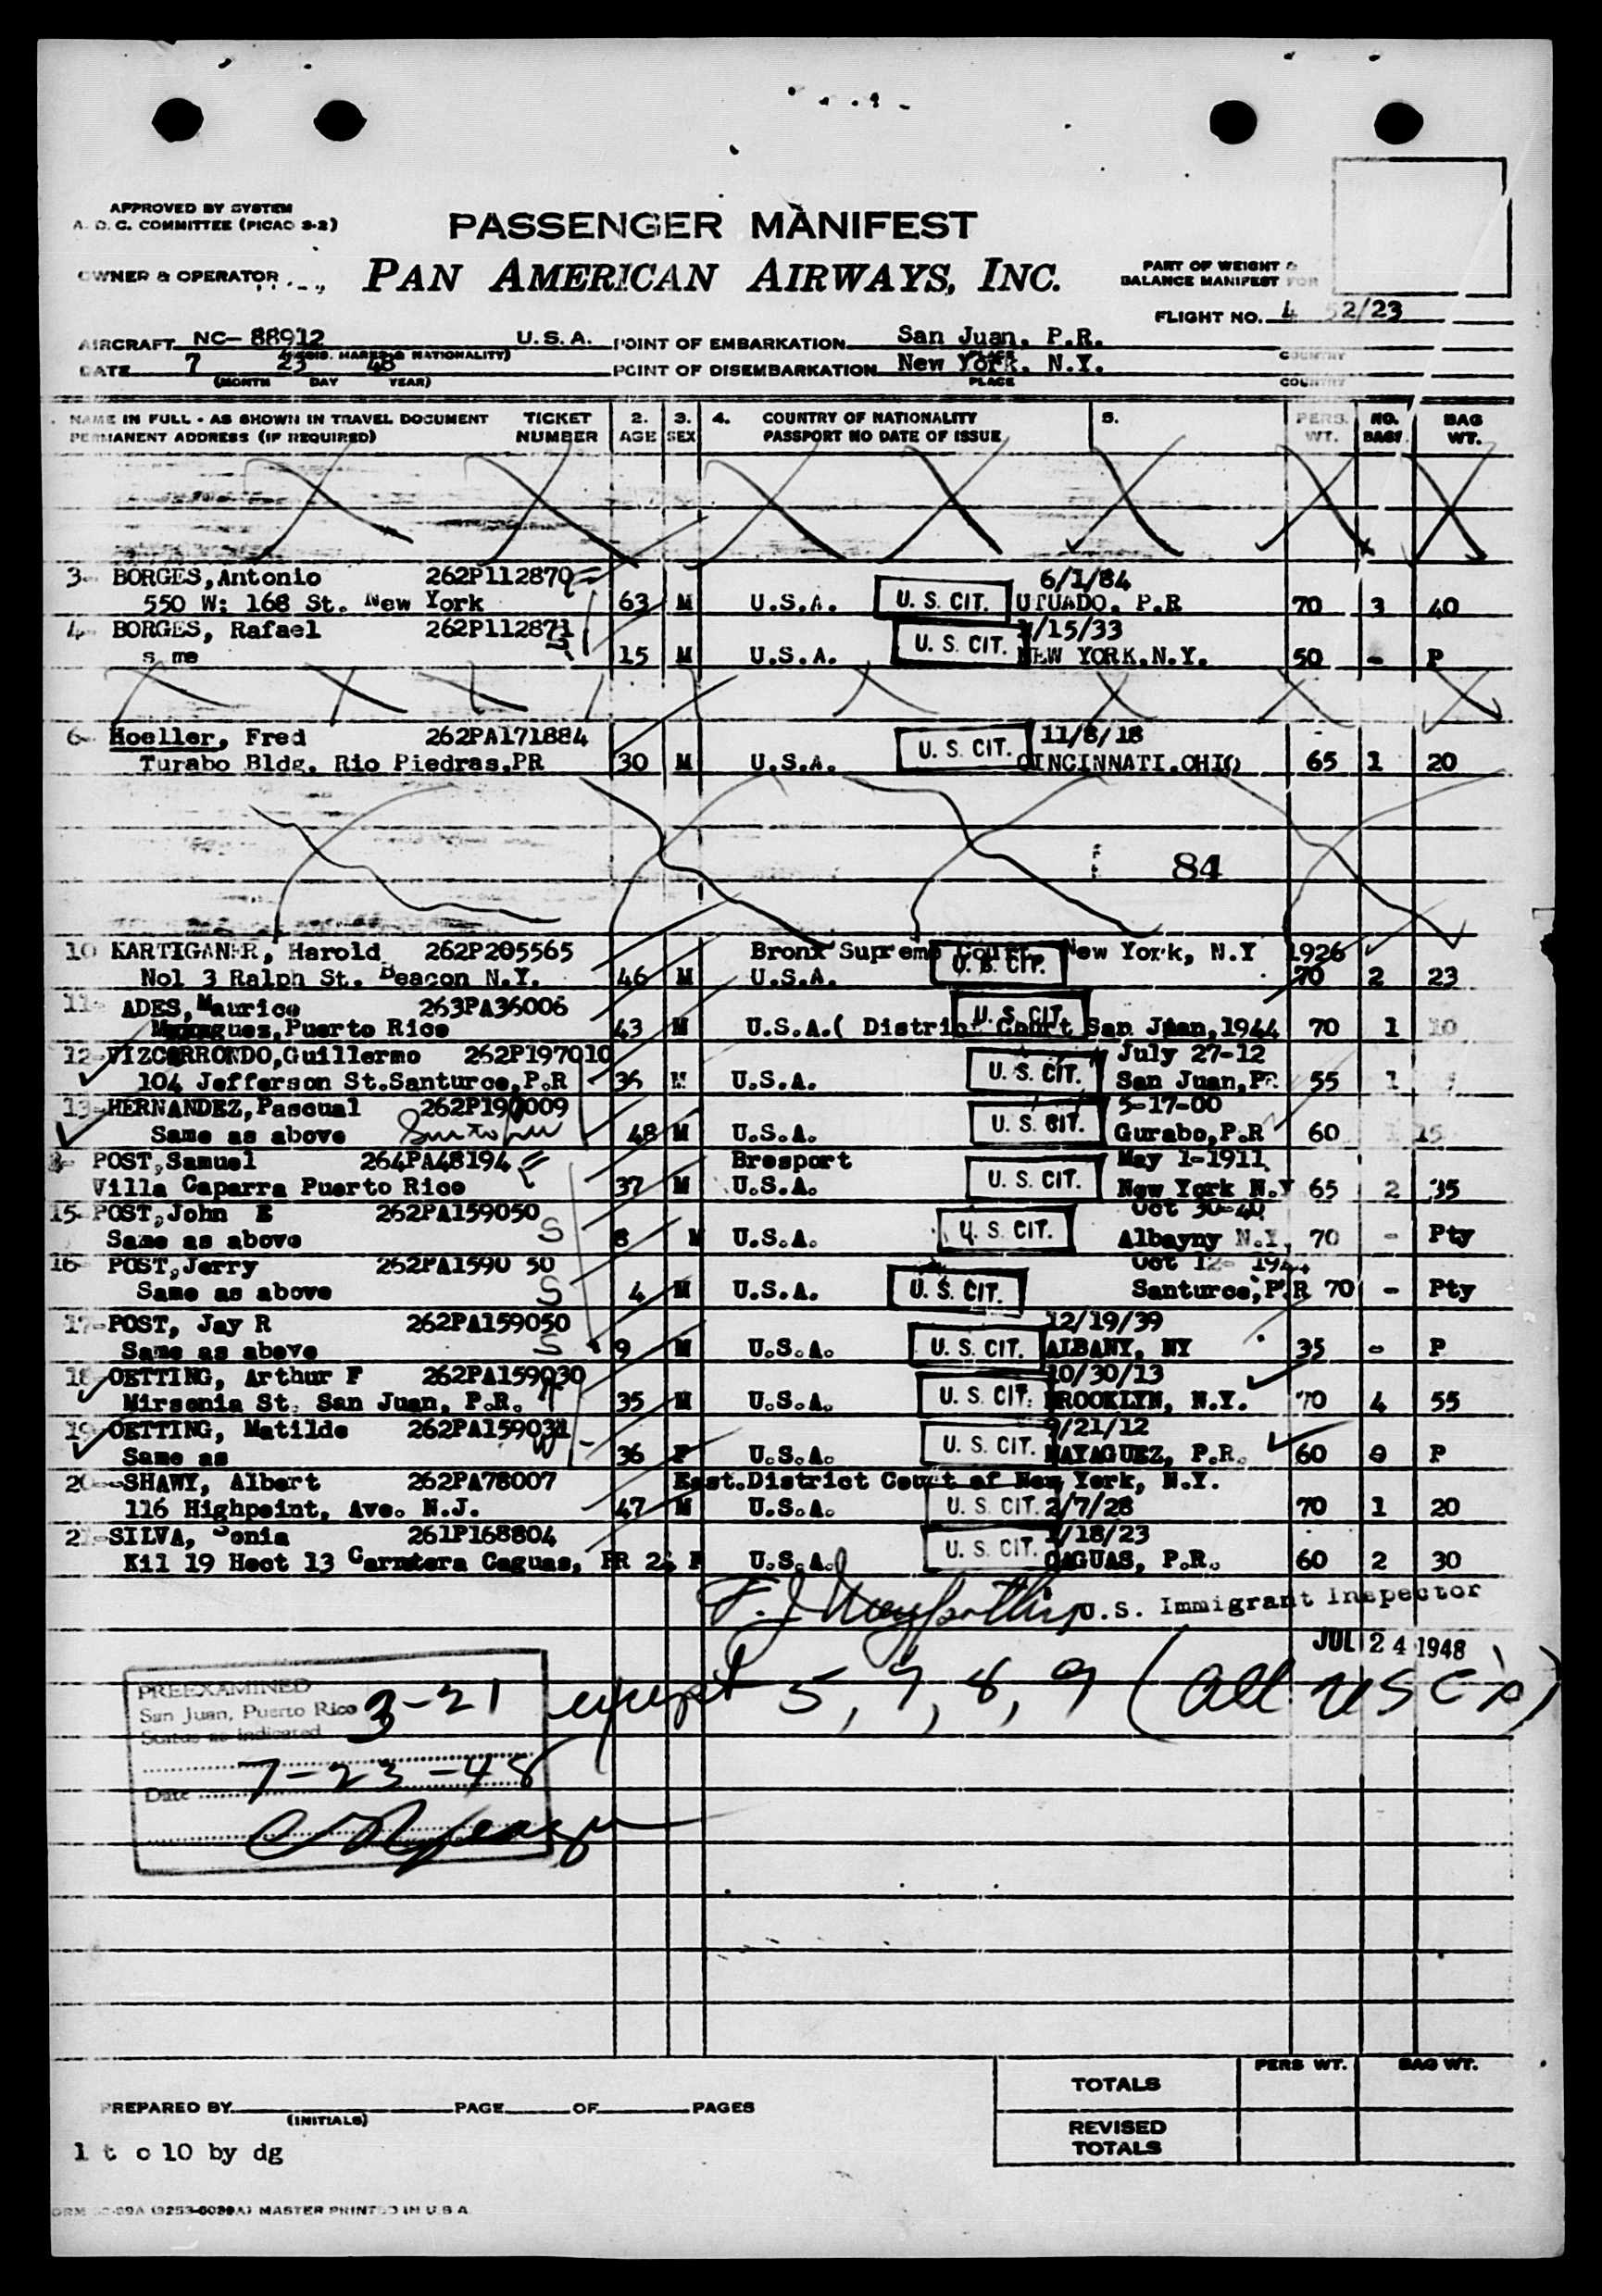 APPROVED BY SYSTEM
A. O. C. COMMITTEE (PICAO S-2)
PASSENGER MANIFEST
OWNER & OPERATOR
PAN AMERICAN AIRWAYS, INC.
PART OF WEIGHT &
BALANCE MANIFEST FOR
FLIGHT NO. 4 52/23
AIRCRAFT NC- 88912 U.S.A. POINT OF EMBARKATION San Juan, P.R.
DATE 7 23 48 POINT OF DISEMBARKATION New York, N.Y.
(MONTH DAY YEAR) PLACE COUNTRY
NAME IN FULL - AS SHOWN IN TRAVEL DOCUMENT TICKET 2. 3. 4. COUNTRY OF NATIONALITY 5. PERS. NO. BAG
PERMANENT ADDRESS (IF REQUIRED) NUMBER AGE SEX PASSPORT NO DATE OF ISSUE WT. BAGS WT.
3- BORGES,Antonio 262P112870 6/1/84
550 W: 168 St. New York 63 M U.S.A. U. S. CIT. UTUADO, P.R 70 3 40
4- BORGES, Rafael 262P112871 /15/33
s me 15 M U.S.A. U. S. CIT. NEW YORK,N.Y. 50 - P
6- Hoeller, Fred 262PA171884 11/8/18
Turabo Bldg, Rio Piedras,PR 30 M U.S.A. U. S. CIT. CINCINNATI,OHIO 65 1 20
84
10 KARTIGANER, Harold 262P205565 Bronx Supreme Court New York, N.Y 1926
Nol 3 Ralph St. Beacon N.Y. 46 M U.S.A. U. S. CIT. 70 2 23
11- ADES,Maurice 263PA36006
Puerto Rico 43 M U.S.A.( District Court San Juan,1944 U. S. CIT. 70 1 10
12-VIZCORRONDO,Guillermo 262P197010 July 27-12
104 Jefferson St.Santurce,P.R 36 M U.S.A. U. S. CIT. San Juan,PR 55 1
13-HERNANDEZ,Pascual 262P190009 5-17-00
Same as above 48 M U.S.A. U. S. CIT. Gurabo,P.R 60 15
POST,Samuel 264PA48194 Bresport May 1-1911
Villa Caparra Puerto Rico 37 M U.S.A. U. S. CIT. New York N.Y 65 2 35
15-POST,John E 262PA159050 Oct 30-40
Same as above S 8 M U.S.A. U. S. CIT. Albayny N.Y, 70 - Pty
16- POST,Jerry 262PA1590 50 Oct 12- 1944
Same as above S 4 M U.S.A. U. S. CIT. Santurce,P.R 70 - Pty
17-POST, Jay R 262PA159050 12/19/39
Same as above S 9 M U.S.A. U. S. CIT. ALBANY, NY 35 - P
18-OETTING, Arthur F 262PA159030 10/30/13
Mirsonia St. San Juan, P.R. 35 M U.S.A. U. S. CIT. BROOKLYN, N.Y. 70 4 55
19-OETTING, Matilde 262PA159031 9/21/12
Same as 36 F U.S.A. U. S. CIT. MAYAGUEZ, P.R. 60 0 P
20--SHAWY, Albert 262PA78007 East.District Court of New York, N.Y.
116 Highpoint, Ave. N.J. 47 M U.S.A. U. S. CIT. 2/7/28 70 1 20
21-SILVA, Sonia 261P168804 /18/23
Kil 19 Hect 13 Carretera Caguas, PR F U.S.A. U. S. CIT. CAGUAS, P.R. 60 2 30
U.S. Immigrant Inspector
JUL 24 1948
PREEXAMINED
San Juan, Puerto Rico 3-21 except 5, 7, 8, 9 (all USC's)
Status as indicated
Date 7-23-48
PERS WT. BAG WT.
TOTALS
PREPARED BY PAGE OF PAGES
(INITIALS)
REVISED
TOTALS
1 t o 10 by dg
MASTER PRINTED IN U S A